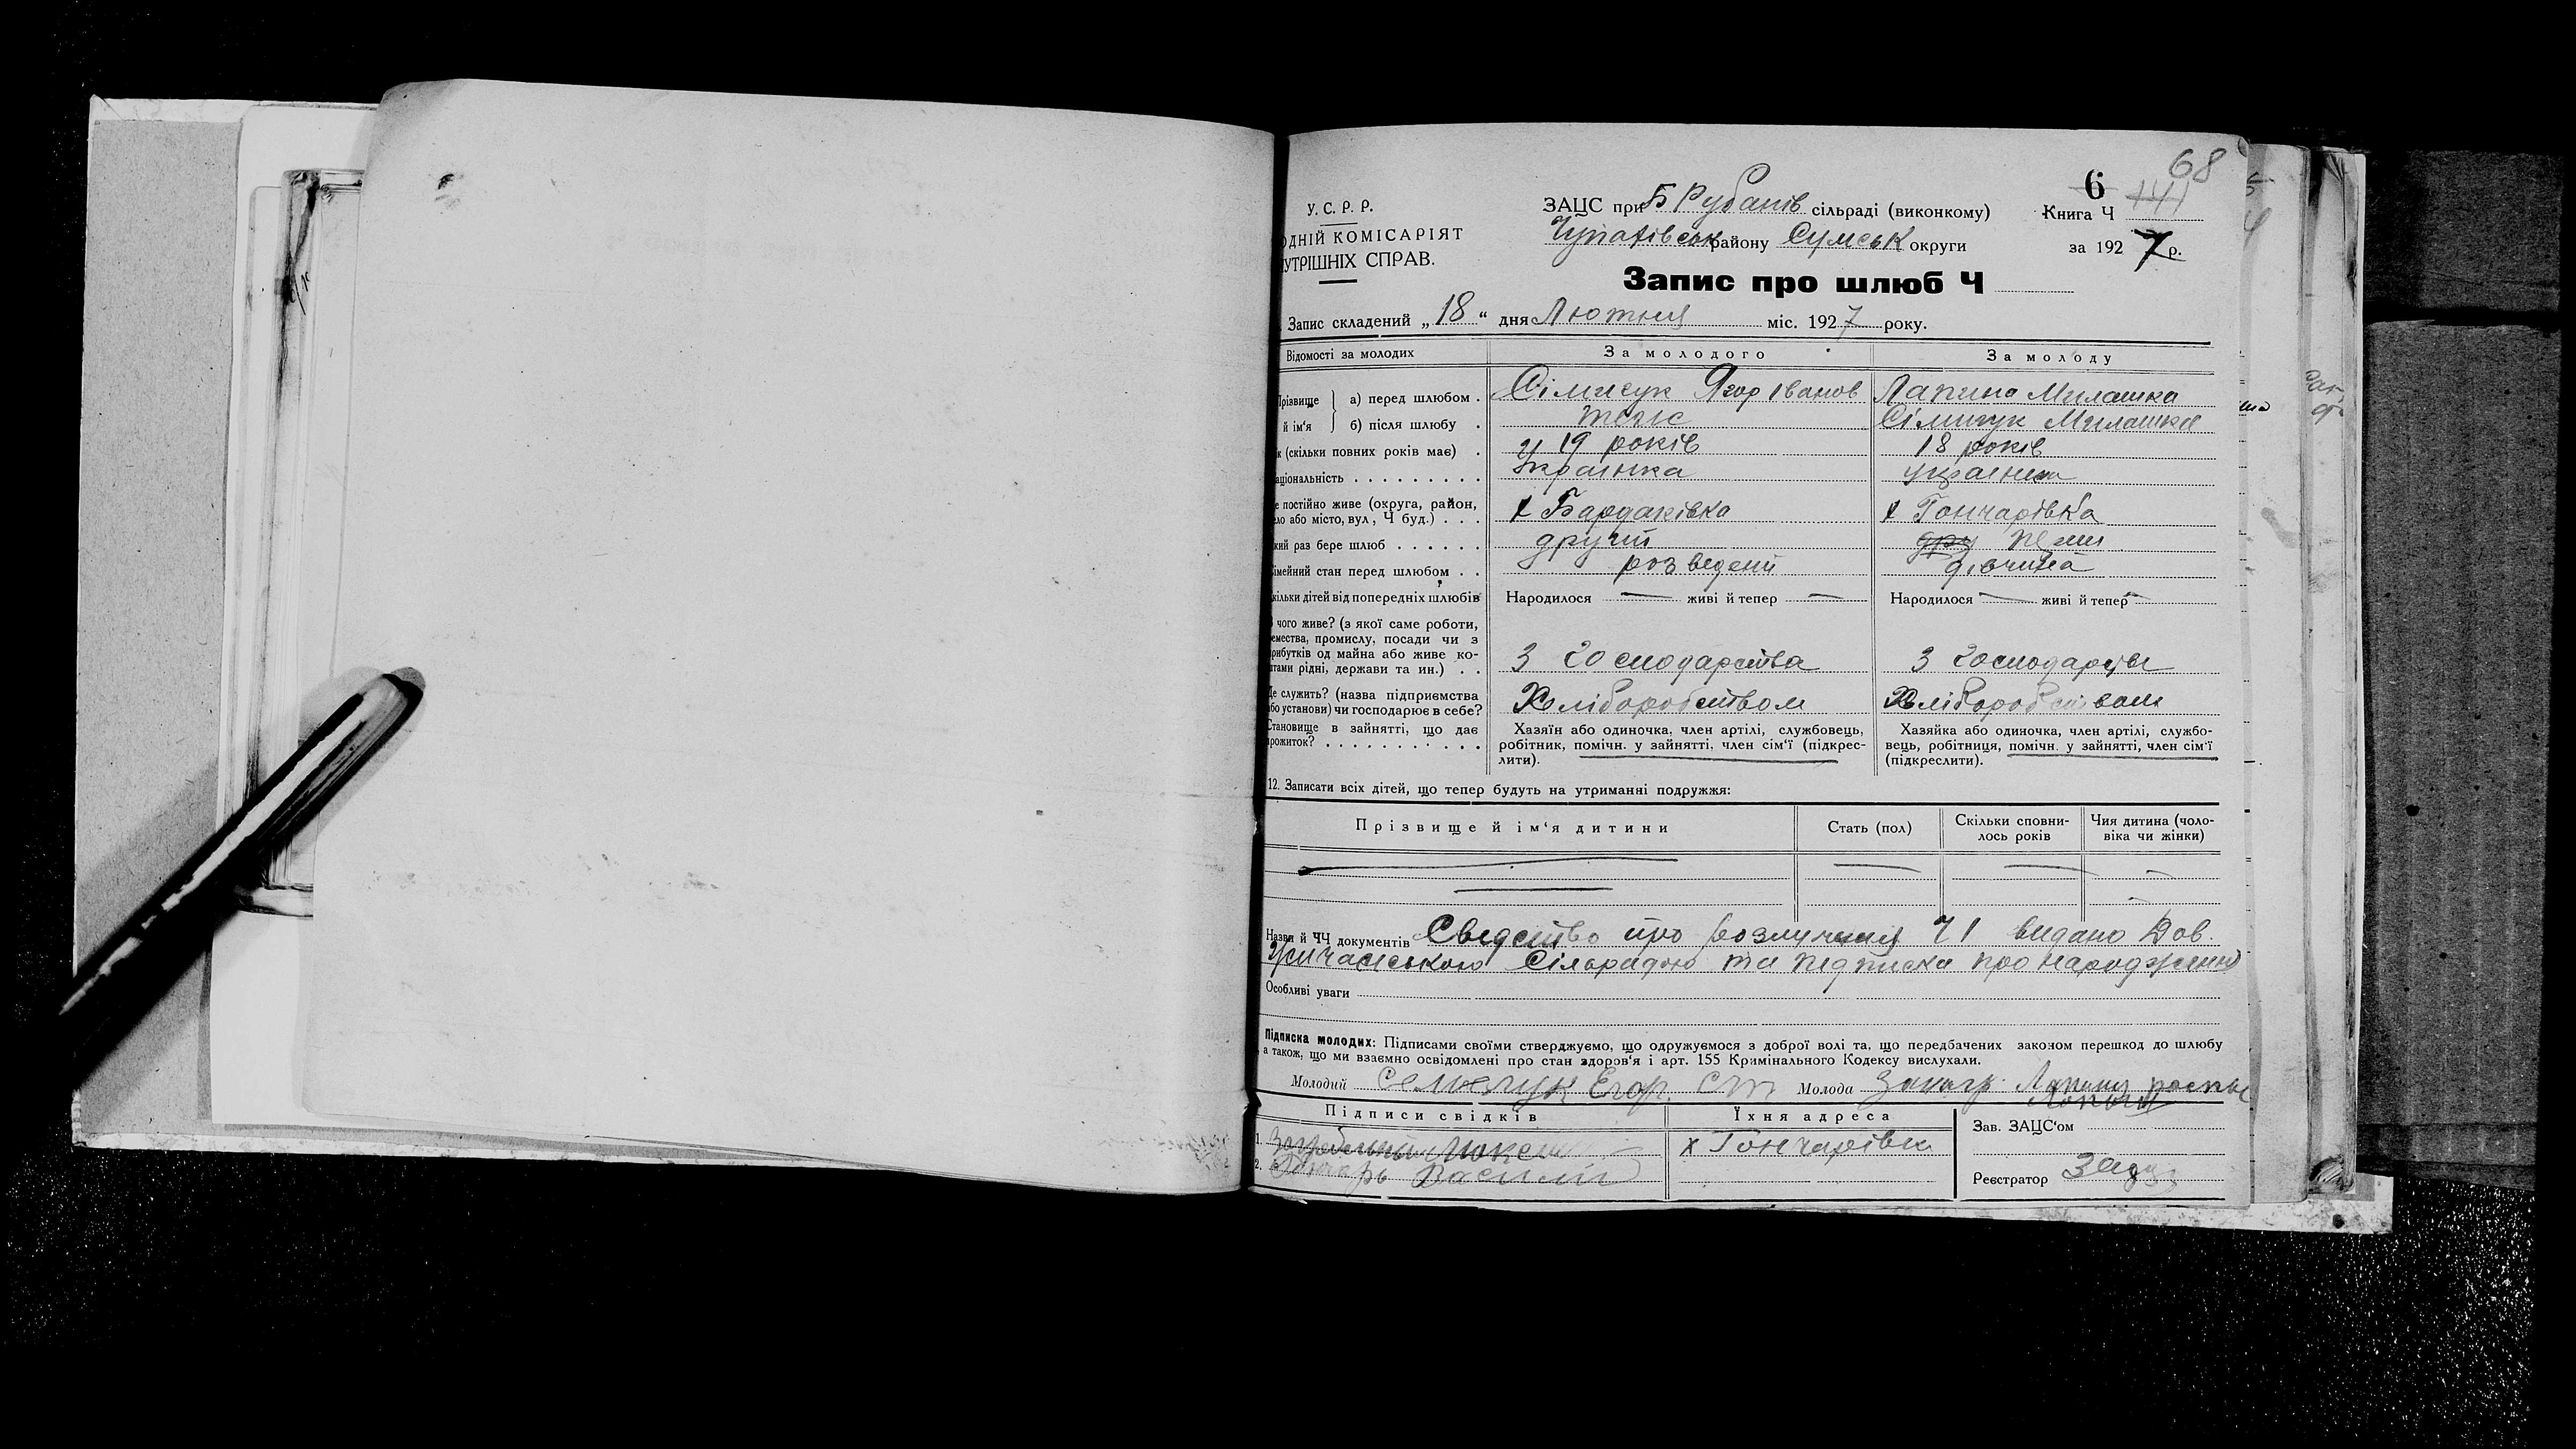 68
6
141
У. С. Р. Р.
ОДНІЙ КОМІСАРІЯТ
УТРІШНІХ СПРАВ.
ЗАЦС при Б Рубанів сільраді (виконкому)
Книга Ч
району Сумськ округи
за 1927 р.
Запис про шлюб Ч
Запис складений „18“ дня Лютня міс. 1927 року.
Відомості за молодих
За молодого
За молоду
Прізвище й ім'я
а) перед шлюбом .
Ягор Іванов
Лапина Милашка
б) після шлюбу .
теж
Сімичук Милашка
к (скільки повних років має) .
19 років
18 років
аціональність . . . . . . . . .
Українка
українка
е постійно живе (округа, район,
ело або місто, вул, Ч буд.) . . .
х Бардаківка
х Гончарівка
кий раз бере шлюб . . . . . .
другий
дру
імейний стан перед шлюбом . .
розведений
дівчина
кільки дітей від попередніх шлюбів
Народилося — живі й тепер —
Народилося — живі й тепер —
чого живе? (з якої саме роботи,
емества, промислу, посади чи з
рибутків од майна або живе ко-
штами рідні, держави та ин.) . .
З господарства
З господарства
Де служить? (назва підприємства
або установи) чи господарює в себе?
Хліборобством
Хліборобством
Становище в зайнятті, що дає
прожиток? . . . . . . . . . . .
Хазяїн або одиночка, член артілі, службовець,
робітник, помічн. у зайнятті, член сім'ї (підкрес-
лити).
Хазяйка або одиночка, член артілі, службо-
вець, робітниця, помічн. у зайнятті, член сім'ї
(підкреслити).
12. Записати всіх дітей, що тепер будуть на утриманні подружжя:
Прізвище й ім'я дитини
Стать (пол)
Скільки сповни-
лось років
Чия дитина (чоло-
віка чи жінки)
Назви й ЧЧ документів Сведство про розлучення Ч 1 видано Дов.
Сільрадою та підписка про народження
Особливі уваги
Підписка молодих: Підписами своїми стверджуємо, що одружуємося з доброї волі та, що передбачених законом перешкод до шлюбу
, а також, що ми взаємно освідомлені про стан здоров'я і арт. 155 Кримінального Кодексу вислухали.
Молодий Егор
Молода
Підписи свідків
Їхня адреса
Зав. ЗАЦС'ом
1.
х Гончарівка
2. Василій
Реєстратор